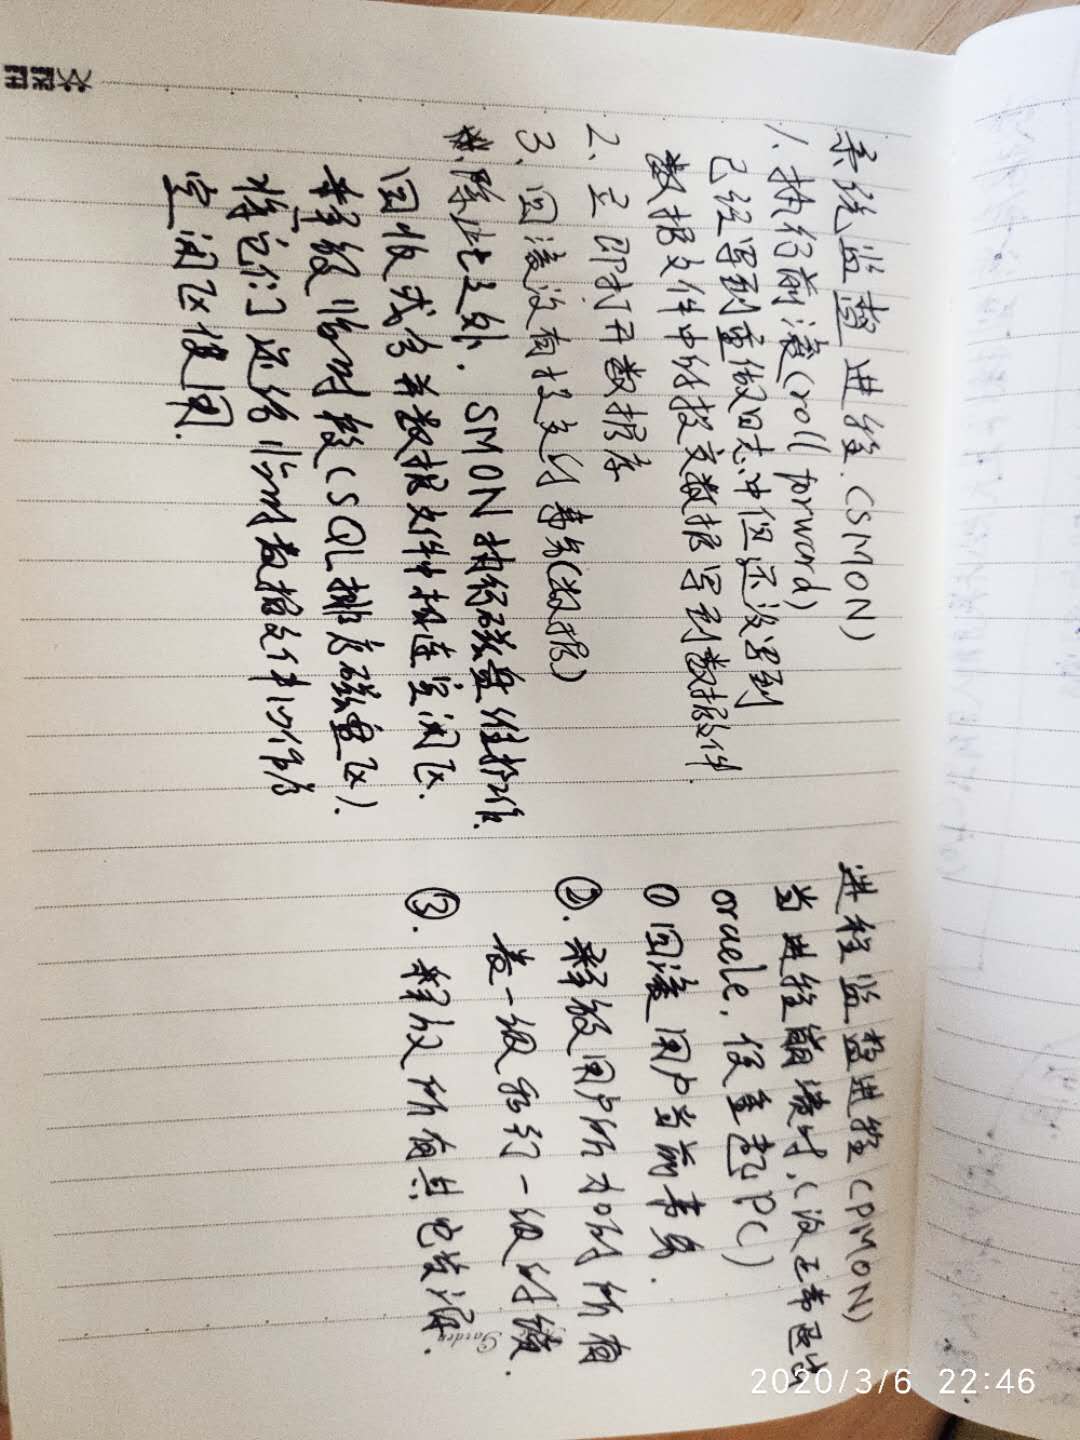 系统监控进程(SMON)
1.执行前滚(roll forword)
已经写到重做日志中但还没写到
数据文件中的提交数据写到数据文件.
2、立即打开数据库
3、回滚没有提交的事务(数据)
除此之外.SMON执行磁盘维护作.
回收或合并数据文件中相连空闲区.
释放临时段(SQL排序磁盘区).
将它们还给临时数据文件作为
空闲区使用.
进程监控进程(PMON)
当进程崩溃时.(没正常退出
oracle.但重起PC)
①回滚用户当前事务.
②.释放用户所加的所有
表一级和行一级的锁.
③.释放所有其它资源.
Garden
2020/3/6 22:46